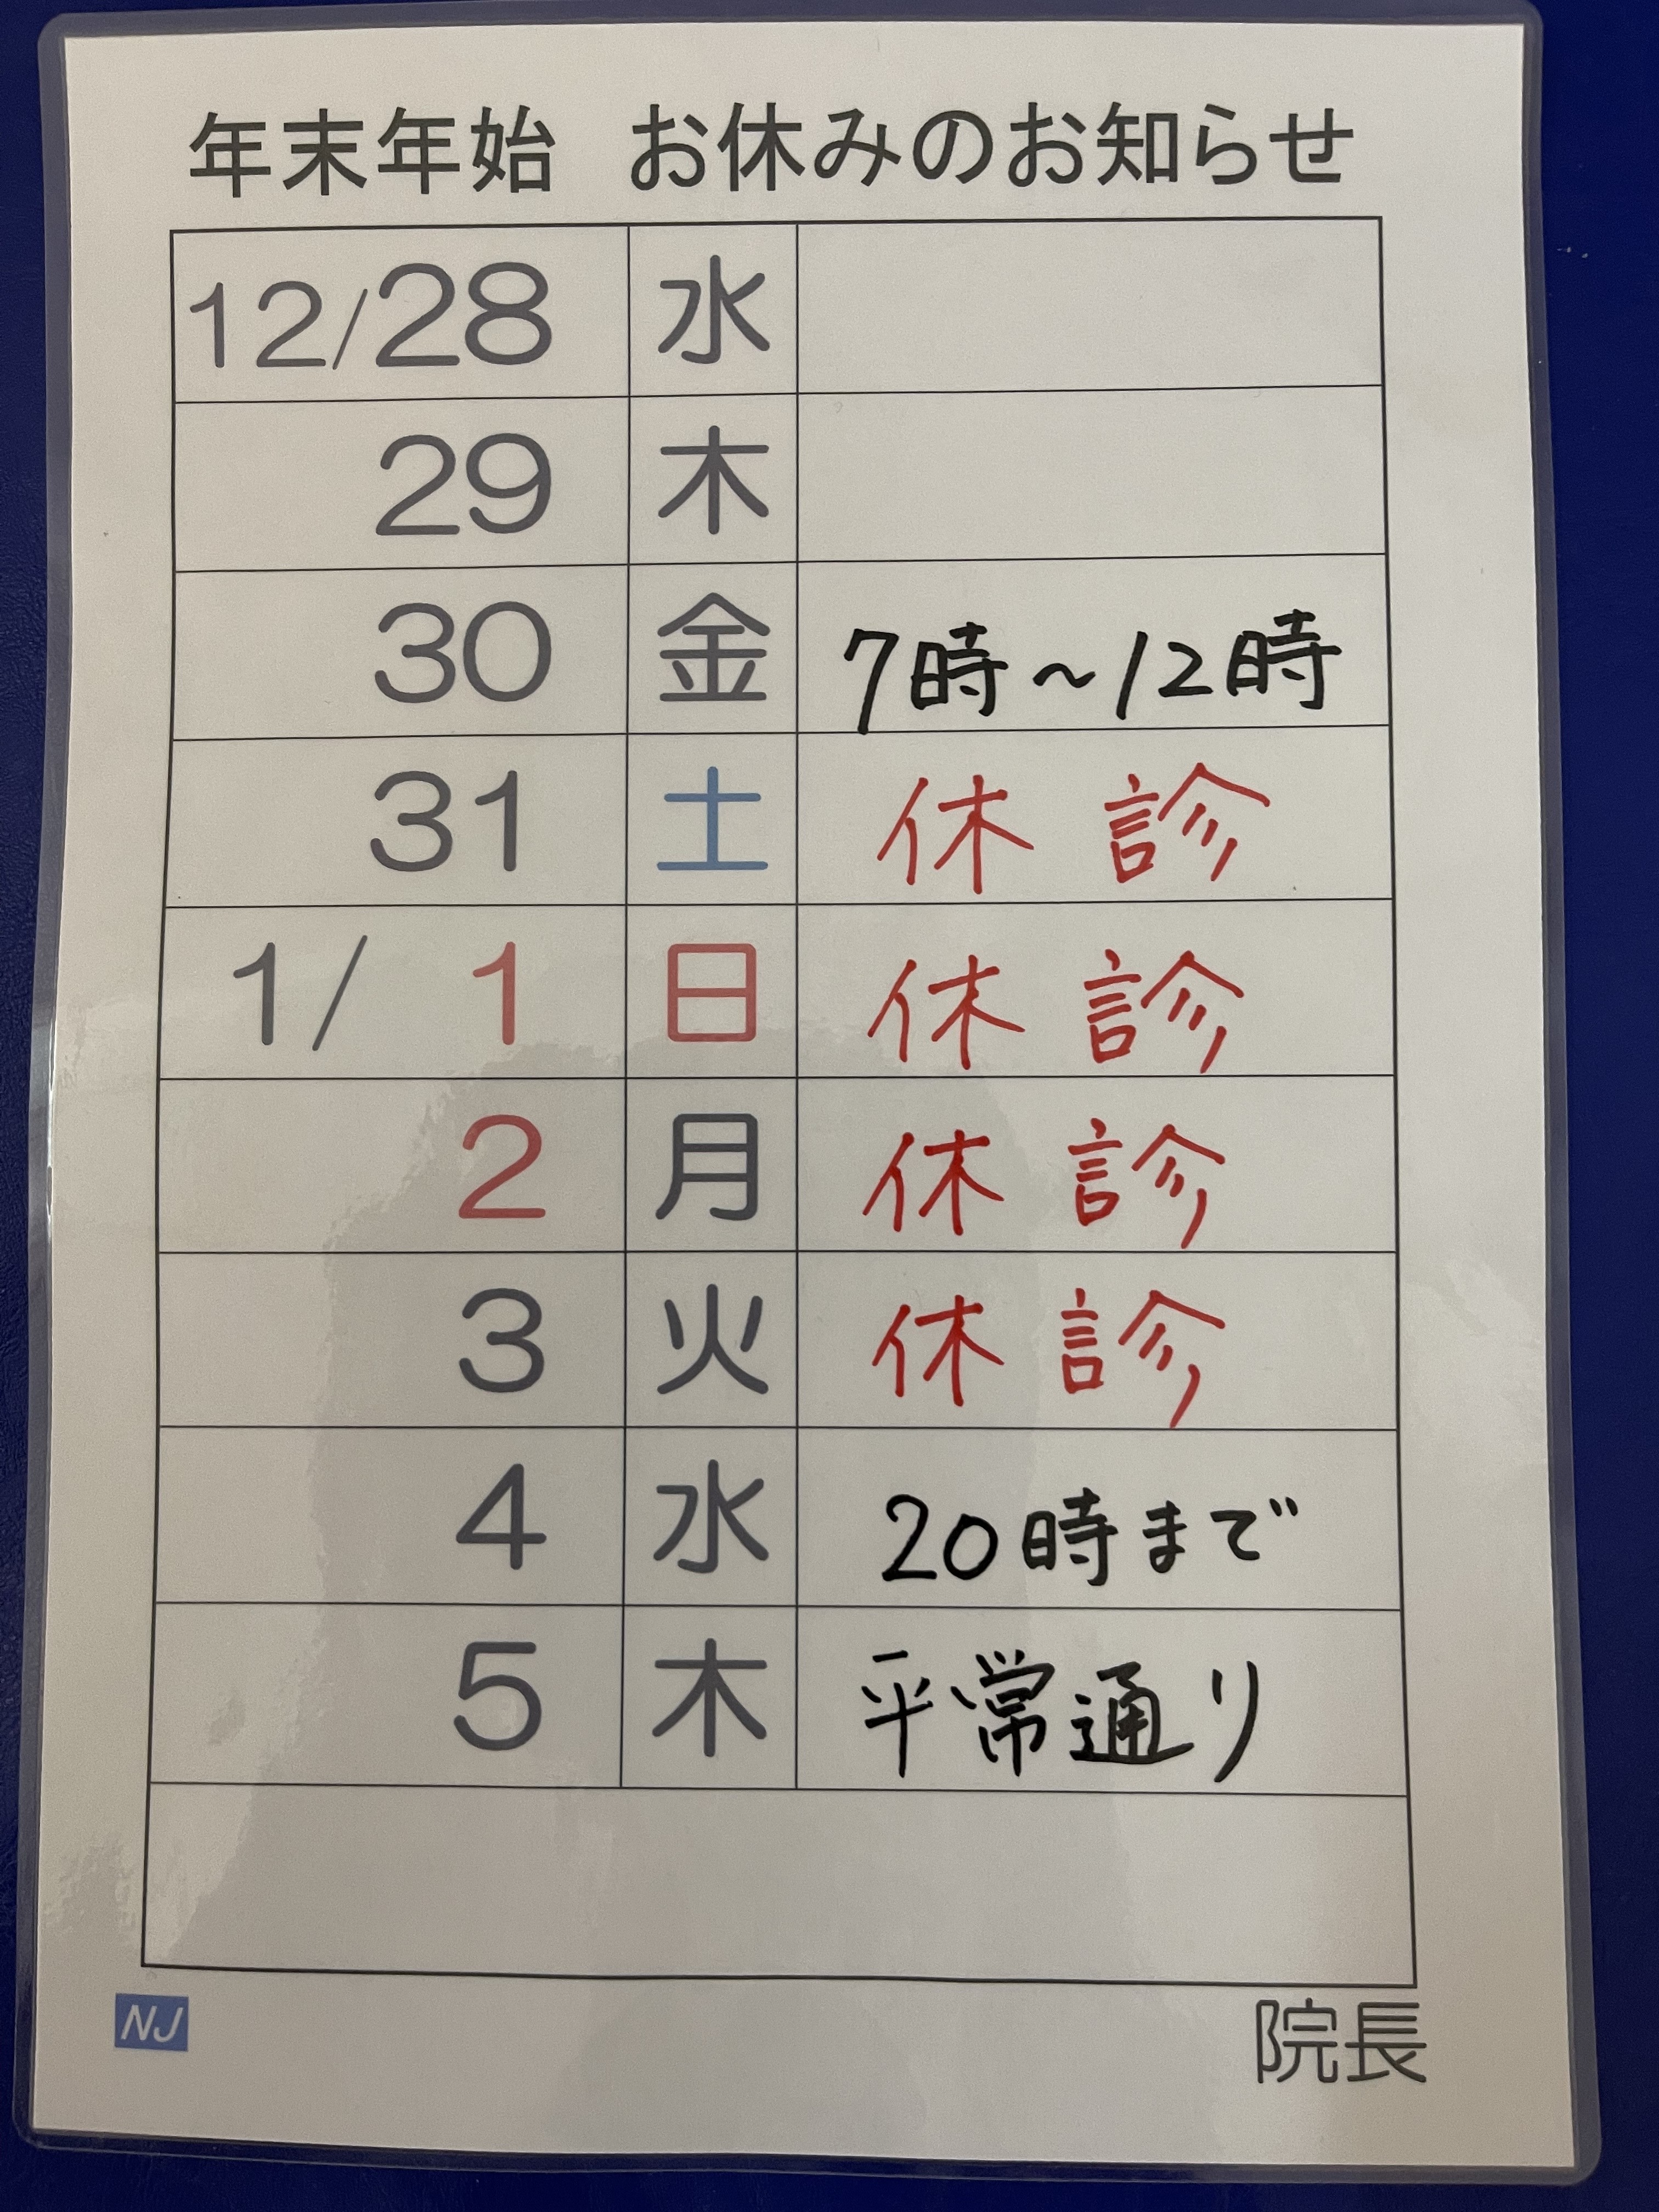 年末年始 お休みのお知らせ
12/28 水
29 木
30 金 7時~12時
31 土 休診
1/ 1 日 休診
2 月 休診
3 火 休診
4 水 20時まで
5 木 平常通り
NJ 院長